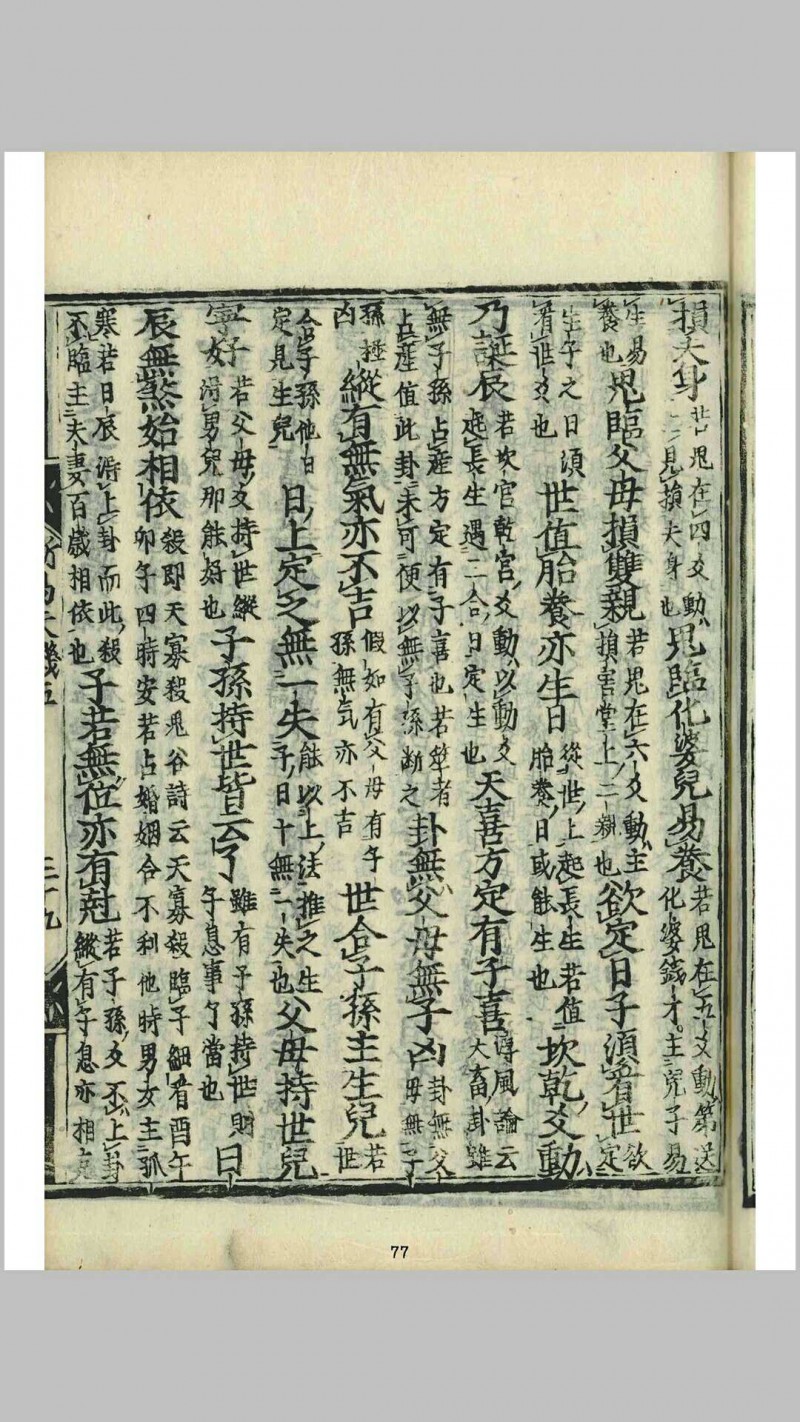 損夫身
若鬼在四爻動
見損夫身也
鬼臨化婆兒易養
若鬼在五爻動第送
化婆錢才主兒子易
生易
養也
鬼臨父母損雙親
若鬼在六爻動主
損害堂上二親也
欲定日子須看世
欲
定
生子之日須
看世爻也
世值胎養亦生日
從世上起長生若值
胎養日或能生也
坎乾爻動
乃誕辰
若坎宮乾宮爻動以動爻
長生遇二合日定生也
天喜方定有子喜
風論云
大畜卦雖
無子孫占產方定有子喜也若者
占產值此卦未可便以無子孫斷之
卦無父母無子凶
卦無父
母無子
孫極
凶
縱有無氣亦不吉
假如有父母有子
孫無气亦不吉
世合子孫主生兒
若
世
合子孫他日
定見生兒
日上定之無一失
能以上法推之生
子日十無一失也
父母持世兒
寧好
若父母爻持世縱
女淂男兒那能好也
子孫持世皆云了
雖有子孫持世則
子息事勾當也
日
辰無煞始相依
殺即天寡殺鬼谷詩云天寡殺臨子細看酉午
卯午四時安若占婚姻合不利他時男女主孤
寒若日辰淂上卦而此殺
不臨主夫妻百歲相依也
子若無位亦有尅
若子孫爻不上卦
縱有子息亦相克
三十九
77